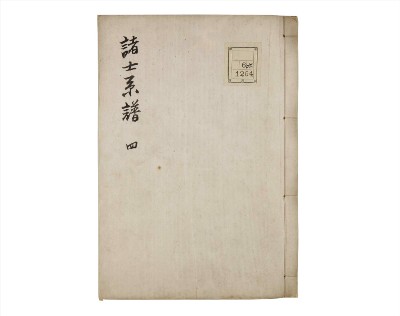 諸士系譜 四
1264